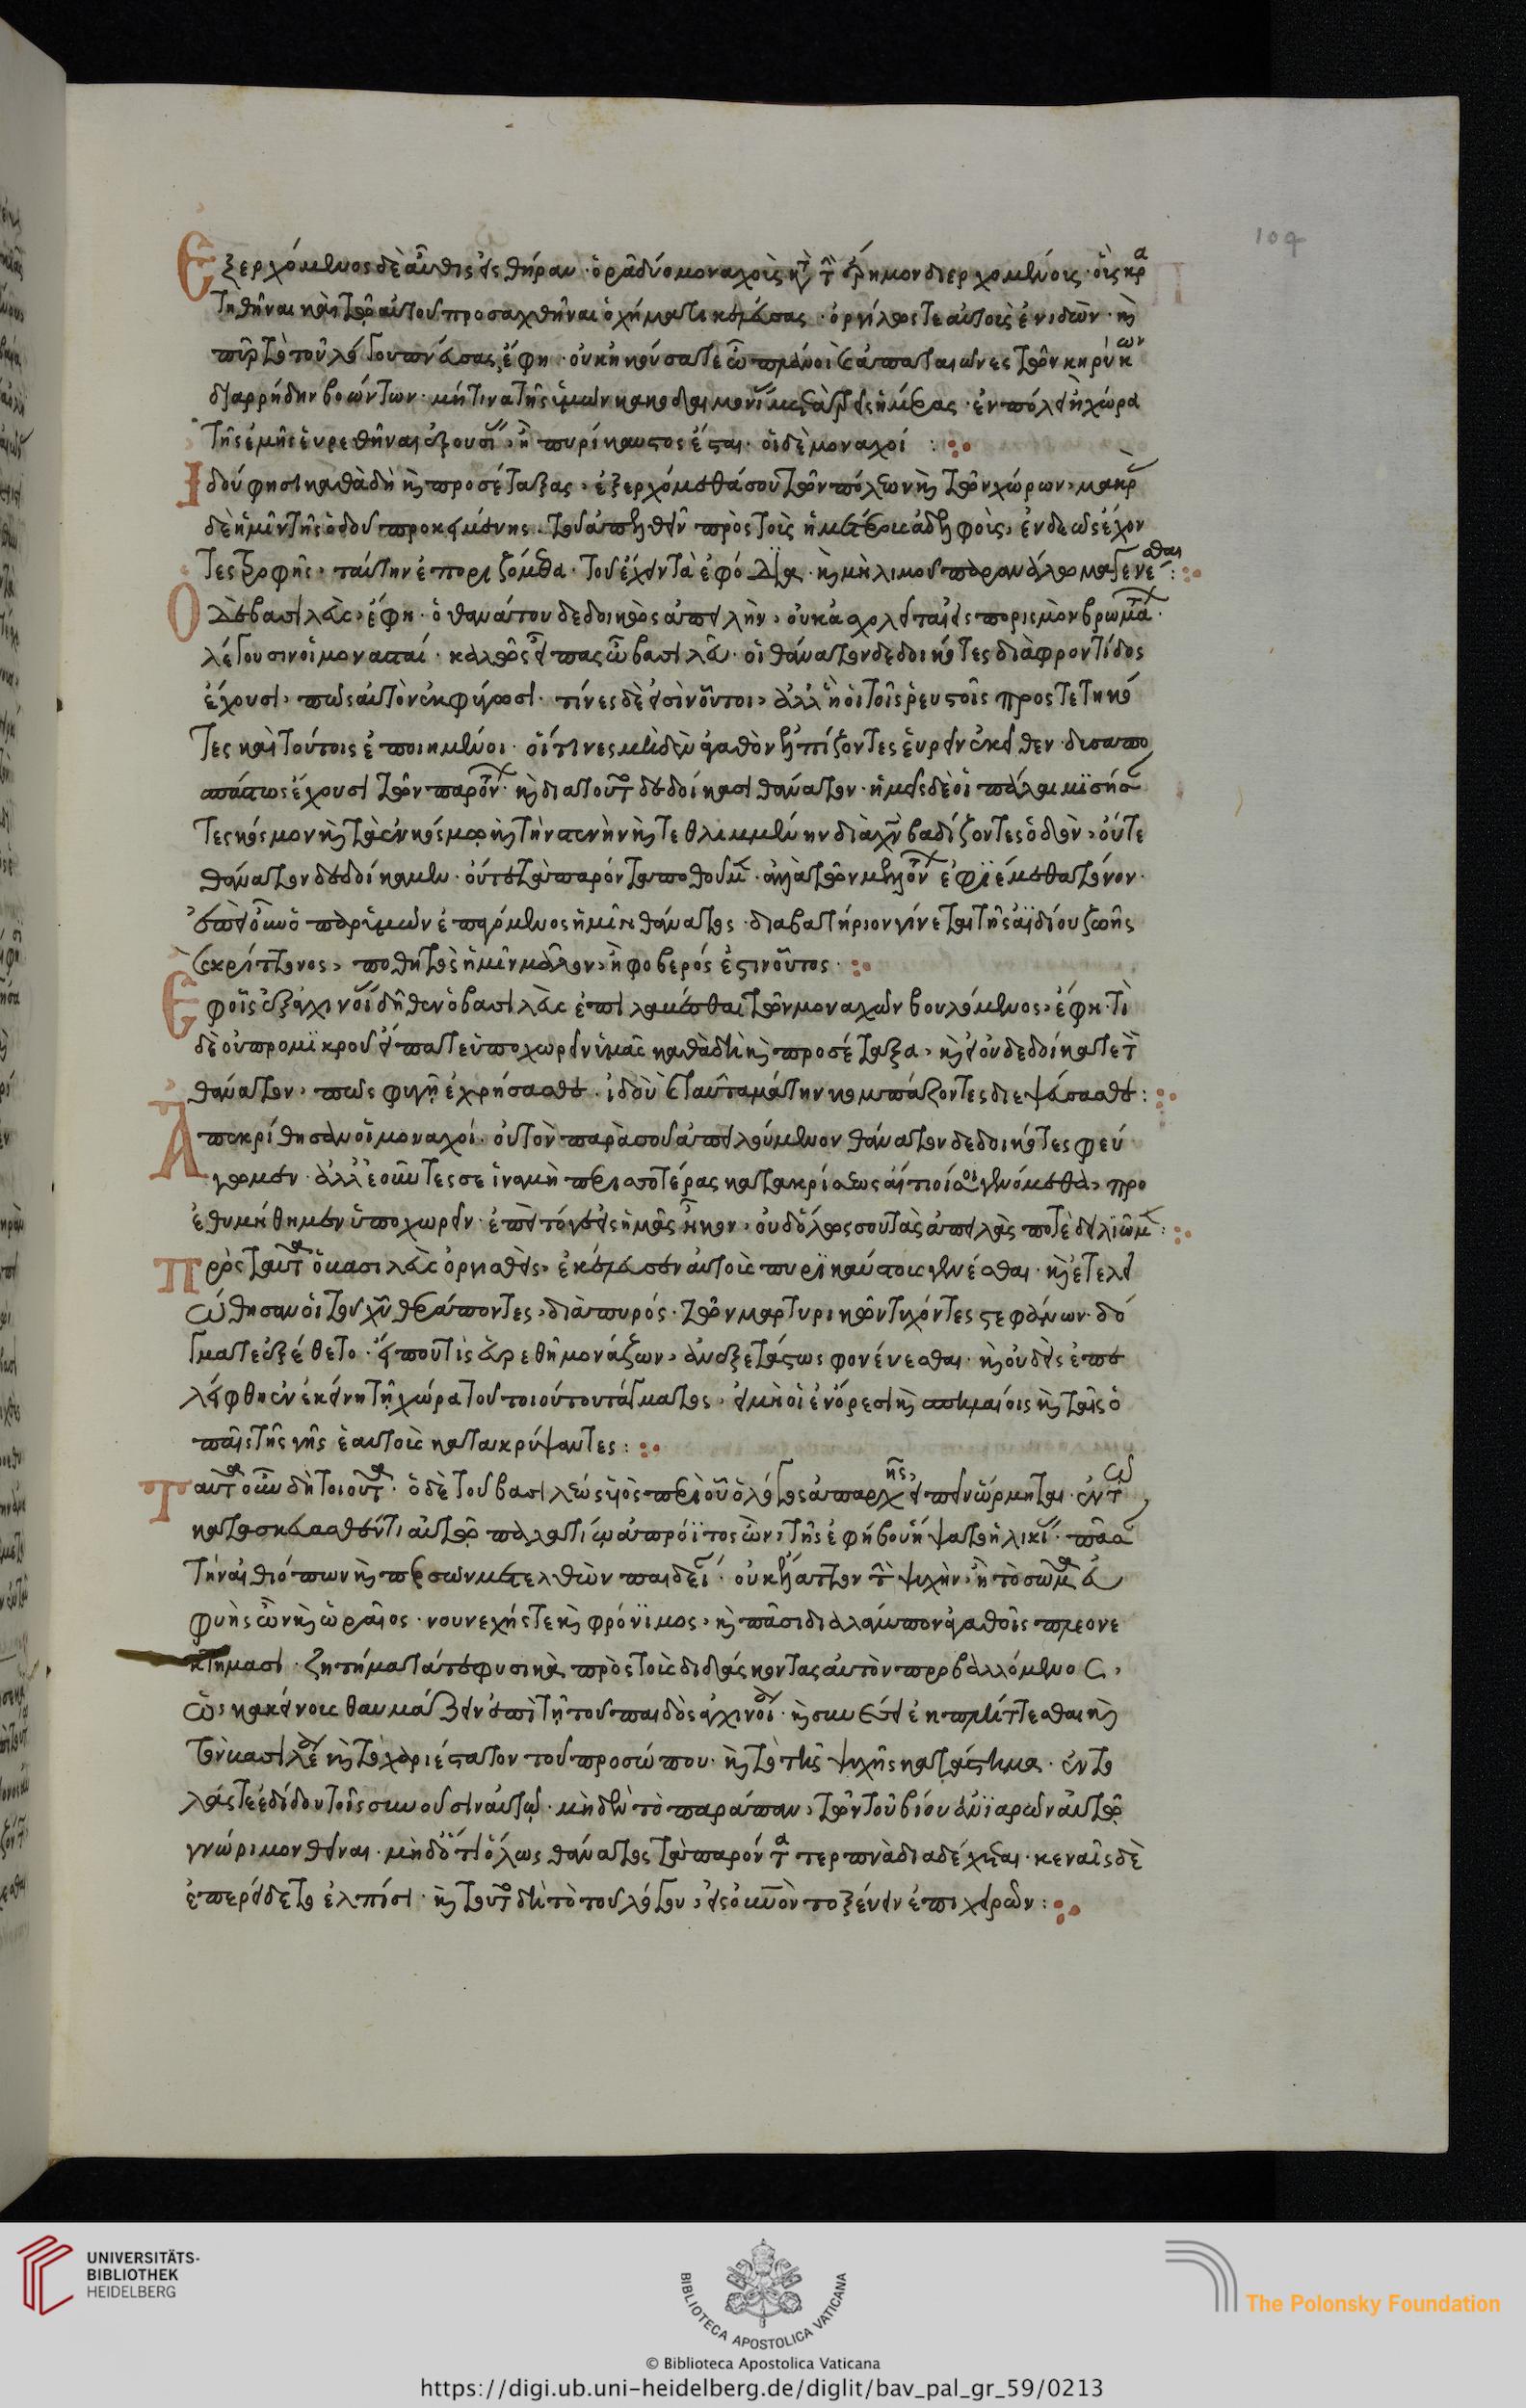 104
Ἐξερχόμενος δὲ αὖθις εἰς θήραν· ὁρᾷ δύο μοναχοὺς κατὰ τὴν ἔρημον διερχομένους· οὓς κρα
τηθῆναι καὶ τῷ αὐτοῦ προσαχθῆναι ὀχήματι κελεύσας· ὀργίλως τε αὐτοῖς ἐνιδὼν· καὶ
πῦρ τὸ τοῦ λόγου πνεύσας, ἔφη· οὐκ ἠκούσατε ὦ πλάνοι καὶ ἀπατεῶνες τῶν κηρύκων
διαρρήδην βοώντων· μή τινα τῆς ὑμῶν κακοδαιμονίας μετὰ τρεῖς ἡμέρας· ἐν πόλει ἢ χώρα
τῆς ἐμῆς εὑρεθῆναι ἐξουσίας, ἢ πυρίκαυστος ἔσται· οἱ δὲ μοναχοί :
Ἰδού φησι καθὰ δὴ καὶ προσέταξας, ἐξερχόμεθά σου τῶν πόλεων καὶ τῶν χώρων, μακρᾶς
δὲ ἡμῖν τῆς ὁδοῦ προκειμένης· τοῦ ἀπελθεῖν πρὸς τοὺς ἡμετέρους ἀδελφοὺς, ἐνδεῶς ἔχον
τες τροφῆς, ταύτην ἐποριζόμεθα· τοῦ ἔχειν τὰ ἐφόδια· καὶ μὴ λιμοῦ παρανάλωμα γενέσθαι :
Ὁ δὲ βασιλεὺς, ἔφη· ὁ θανάτου δεδοικὼς ἀπειλὴν, οὐκ ἀσχολεῖται εἰς πορισμὸν βρωμάτων·
λέγουσιν οἱ μονασταί· καλῶς εἶπας ὦ βασιλεῦ· οἱ θάνατον δεδοικότες διὰ φροντίδος
ἔχουσι, πῶς αὐτὸν ἐκφύγωσι· τίνες δὲ εἰσὶν οὗτοι, ἀλλ' ἢ οἱ τοῖς ῥευστοῖς προστετηκό
τες καὶ τούτοις ἐπτοημένοι· οἵτινες μηδὲν ἀγαθὸν ἐλπίζοντες εὑρεῖν ἐκεῖθεν· δυσαπο
σπάστως ἔχουσι τῶν παρόντων· καὶ διατοῦτο δεδοίκασι θάνατον· ἡμεῖς δὲ οἱ πάλαι μισήσαν
τες κόσμον καὶ τὰ ἐν κόσμῳ καὶ τὴν στενὴν καὶ τεθλιμμένην διὰ χριστὸν βαδίζοντες ὁδὸν, οὔτε
θάνατον δεδοίκαμεν· οὔτε τὰ παρόντα ποθοῦμεν· ἀλλὰ τῶν μελλόντων ἐφιέμεθα μόνον·
ἐπεὶ οὖν ὁ παρ' ὑμῶν ἐπαγόμενος ἡμῖν θάνατος· διαβατήριον γίνεται τῆς ἀϊδίου ζωῆς
καὶ κρείττονος, ποθητὸς ἡμῖν μᾶλλον, ἢ φοβερός ἐστιν οὗτος·
Ἐφ' οἷς ἐξ ἀγχινοίας δῆθεν ὁ βασιλεὺς ἐπιλαβέσθαι τῶν μοναχῶν βουλόμενος, ἔφη· τί
δὲ οὐ προ μικροῦ εἴπατε ὑποχωρεῖν ὑμᾶς καθὰ δὴ καὶ προσέταξα, καὶ εἰ οὐ δεδοίκατε τὸν
θάνατον, πῶς φυγῇ ἐχρήσασθε· ἰδοὺ καὶ ταῦτα μάτην κομπάζοντες διεψεύσασθε :
Ἀπεκρίθησαν οἱ μοναχοί· οὐ τὸν παρὰ σοῦ ἀπειλούμενον θάνατον δεδοικότες φεύ
γομεν· ἀλλ' ἐλεοῦντές σε ἵνα μὴ περισσοτέρας κατακρίσεως αἴτιοί σοι γενώμεθα, προ
εθυμήθημεν ὑποχωρεῖν· ἐπεὶ τόγε εἰς ἡμᾶς ἧκον, οὐδόλως σου τὰς ἀπειλάς ποτε δειλιῶμεν :
Πρὸς ταῦτα ὁ βασιλεὺς ὀργισθεὶς, ἐκέλευσεν αὐτοὺς πυρικαύστους γενέσθαι· καὶ ἐτελει
ώθησαν οἱ τοῦ θεοῦ θεράποντες, διὰ πυρός· τῶν μαρτυρικῶν τυχόντες στεφάνων· δό
γμα τε ἐξέθετο· εἴ που τὶς εὑρεθῇ μονάζων, ἀνεξετάστως φονεύεσθαι· καὶ οὐδεὶς ὑπε
λείφθη ἐν ἐκείνῃ τῇ χώρα τοῦ τοιούτου τάγματος, εἰ μὴ οἱ ἐν ὄρεσι καὶ σπηλαίοις καὶ ταῖς ὀ
παῖς τῆς γῆς ἑαυτοὺς κατακρύψαντες :
Ταῦτα οὖν δὴ τοιοῦτα· ὁ δὲ τοῦ βασιλέως υἱὸς περὶ οὗ ὁ λόγος ἀπαρχῆς εἰπεῖν ὥρμηται· ἐν τῷ
κατασκευασθέντι αὐτῷ παλατίῳ ἀπρόϊτος ὢν, τῆς ἐφήβου ἥψατο ἡλικίας· πᾶσαν
τὴν αἰθιόπων καὶ περσῶν μετελθὼν παιδείαν· οὐκ ἔλαττον τὴν ψυχὴν, ἢ τὸ σῶμα εὐ
φυὴς ὢν καὶ ὡραῖος· νουνεχής τε καὶ φρόνιμος, καὶ πᾶσι διαλάμπων ἀγαθοῖς πλεονε
κτήμασι· ζητήματά τε φυσικὰ πρὸς τοὺς διδάσκοντας αὐτὸν προβαλλόμενος,
ὡς κακείνους θαυμάζειν ἐπὶ τῇ τοῦ παιδὸς ἀγχινοία· καὶ συνέσει ἐκπλήττεσθαι καὶ
τὸν βασιλέα καὶ τὸ χαριέστατον τοῦ προσώπου· καὶ τὸ τῆς ψυχῆς κατάστημα· ἐντο
λάς τε ἐδίδου τοῖς συνοῦσιν αὐτῷ· μηδὲν τὸ παράπαν, τῶν τοῦ βίου ἀνιαρῶν αὐτῷ
γνώριμον θεῖναι· μὴ δ' ὅτι ὅλως θάνατος τὰ παρόντα τερπνὰ διαδέχεται· κεναῖς δὲ
ἐπερείδετο ἐλπίσι· καὶ τοῦτο δὴ τὸ τοῦ λόγου, εἰς οὐρανὸν τοξεύειν ἐπιχειρῶν :
UNIVERSITÄTS-
BIBLIOTHEK
HEIDELBERG
BIBLIOTECA APOSTOLICA VATICANA
The Polonsky Foundation
© Biblioteca Apostolica Vaticana
https://digi.ub.uni-heidelberg.de/diglit/bav_pal_gr_59/0213